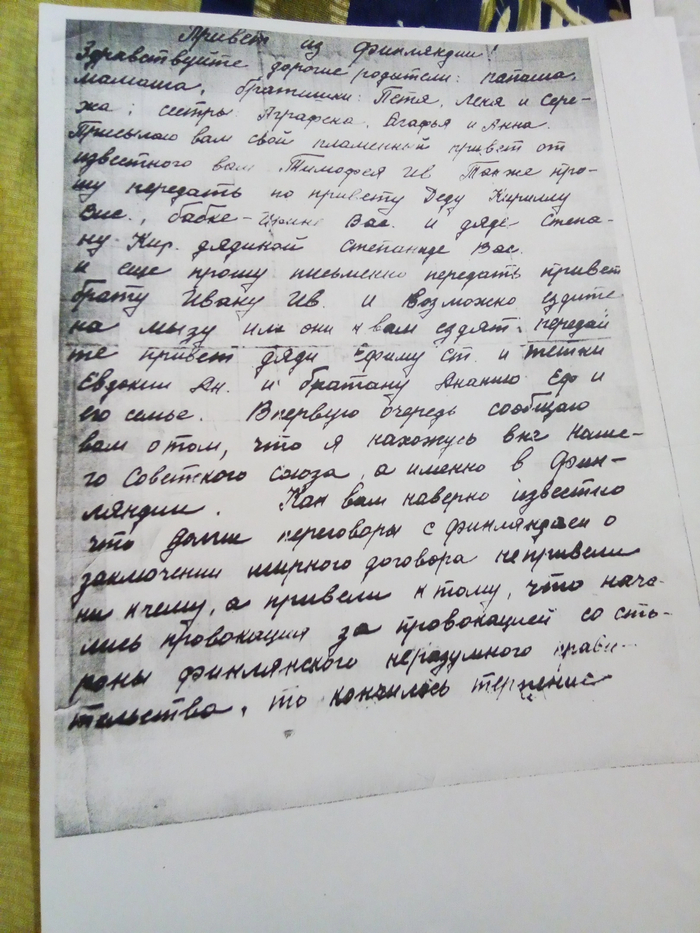 Привет из Финляндии!
Здравствуйте дорогие родители: папаша,
мамаша, братишки: Петя, Лёкя и Сере-
жа; сестры: Аграфена, Агафья и Анна.
Присылаю вам свой пламенный привет от
известного вам Тимофея Ив Также про-
шу передать по привету Деду Кириллу
Вас., бабке Вас. и дяде Степа-
ну Кир. дядиной Степаниде Вас.
и еще прошу письменно передать привет
брату Ивану Ив. и возможно ездите
на мызу или они к вам ездят: передай
те привет дяди Ефиму Ст. и тетки
Евдокии Ан. и братану Ананию Еф и
его семье. Впервую очередь сообщаю
вам о том, что я нахожусь вне наше-
го Советского союза, а именно в Фин-
ляндии. Как вам наверно известно
что долги переговоры с Финляндией о
заключении мирного договора не привели
ни к чему, а привели к тому, что нача-
лись провокация за провокацией со сто-
роны финлянского неразумного прави-
тельства, то кончилось терпение